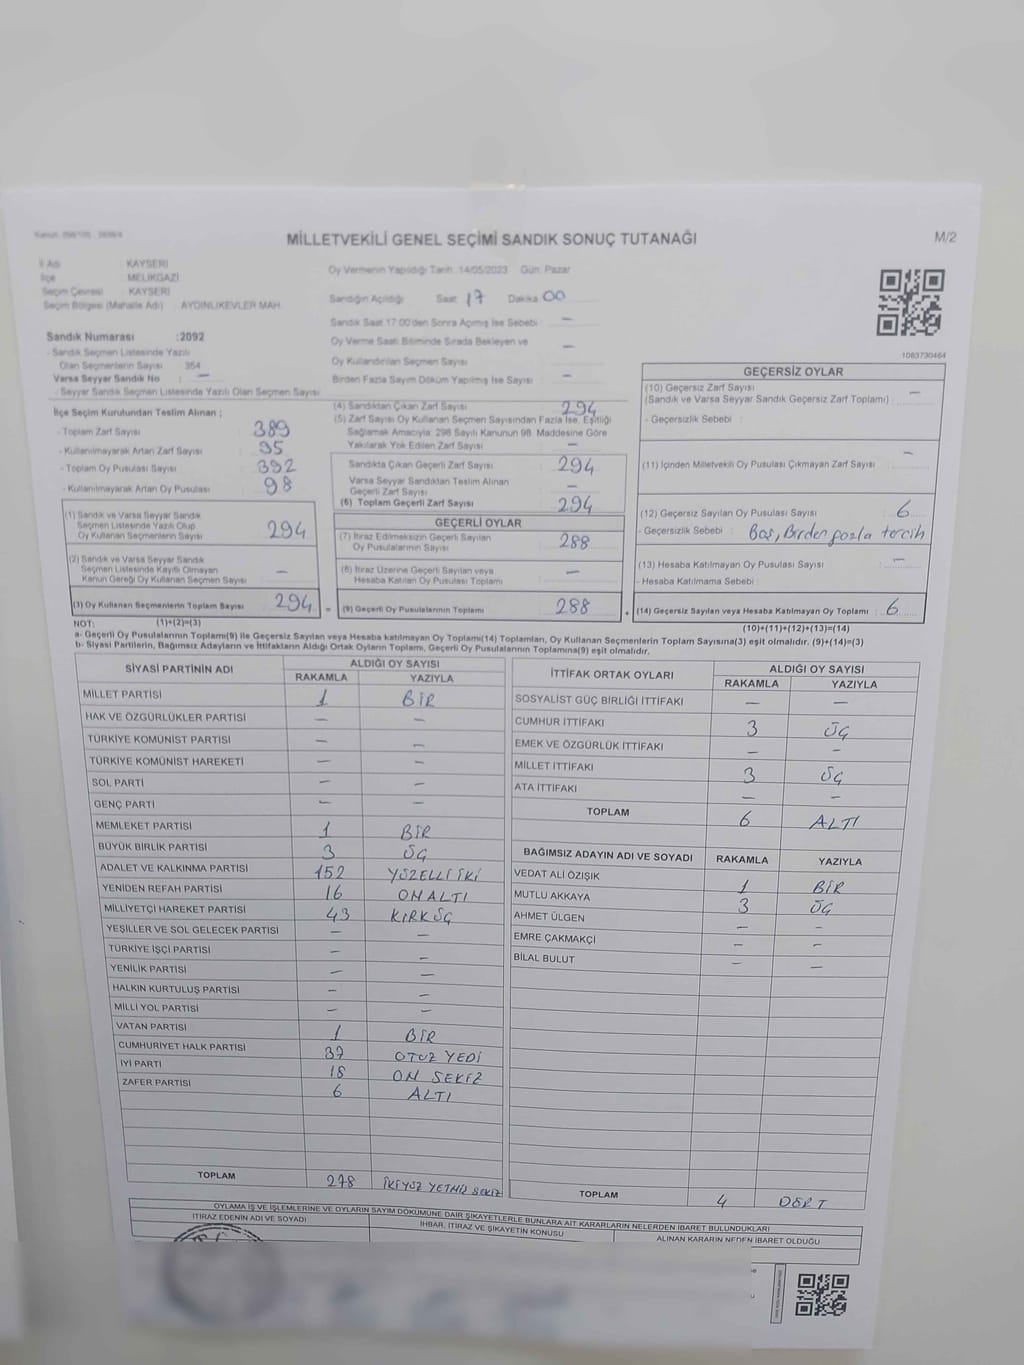 MİLLETVEKİLİ GENEL SEÇİMİ SANDIK SONUÇ TUTANAĞI
M/2
İl Adı : KAYSERİ
İlçe : MELİKGAZİ
Seçim Çevresi : KAYSERİ
Seçim Bölgesi (Mahalle Adı) : AYDINLIKEVLER MAH.
Sandık Numarası :2092
- Sandık Seçmen Listesinde Yazılı
Olan Seçmenlerin Sayısı : 354
Varsa Seyyar Sandık No : —
- Seyyar Sandık Seçmen Listesinde Yazılı Olan Seçmen Sayısı
Oy Vermenin Yapıldığı Tarih :14/05/2023 Gün: Pazar
Sandığın Açıldığı Saat 17 Dakika 00
Sandık Saat 17:00'den Sonra Açılmış İse Sebebi : —
Oy Verme Saati Bitiminde Sırada Bekleyen ve
Oy Kullandırılan Seçmen Sayısı : —
Birden Fazla Sayım Döküm Yapılmış İse Sayısı : —
1083730464
İlçe Seçim Kurulundan Teslim Alınan ;
- Toplam Zarf Sayısı : 389
- Kullanılmayarak Artan Zarf Sayısı : 95
- Toplam Oy Pusulası Sayısı : 392
- Kullanılmayarak Artan Oy Pusulası : 98
(1) Sandık ve Varsa Seyyar Sandık
Seçmen Listesinde Yazılı Olup
Oy Kullanan Seçmenlerin Sayısı : 294
(2) Sandık ve Varsa Seyyar Sandık
Seçmen Listesinde Kayıtlı Olmayan
Kanun Gereği Oy Kullanan Seçmen Sayısı : —
(3) Oy Kullanan Seçmenlerin Toplam Sayısı : 294 =
(4) Sandıktan Çıkan Zarf Sayısı : 294
(5) Zarf Sayısı Oy Kullanan Seçmen Sayısından Fazla İse, Eşitliği
Sağlamak Amacıyla; 298 Sayılı Kanunun 98. Maddesine Göre
Yakılarak Yok Edilen Zarf Sayısı : —
Sandıkta Çıkan Geçerli Zarf Sayısı : 294
Varsa Seyyar Sandıktan Teslim Alınan
Geçerli Zarf Sayısı : —
(6) Toplam Geçerli Zarf Sayısı : 294
GEÇERLİ OYLAR
(7) İtiraz Edilmeksizin Geçerli Sayılan
Oy Pusulalarının Sayısı : 288
(8) İtiraz Üzerine Geçerli Sayılan veya
Hesaba Katılan Oy Pusulası Toplamı : —
(9) Geçerli Oy Pusulalarının Toplamı : 288 +
GEÇERSİZ OYLAR
(10) Geçersiz Zarf Sayısı
(Sandık ve Varsa Seyyar Sandık Geçersiz Zarf Toplamı) : —
- Geçersizlik Sebebi :
(11) İçinden Milletvekili Oy Pusulası Çıkmayan Zarf Sayısı : —
(12) Geçersiz Sayılan Oy Pusulası Sayısı : 6
- Geçersizlik Sebebi : Boş, Birden fazla tercih
(13) Hesaba Katılmayan Oy Pusulası Sayısı : —
- Hesaba Katılmama Sebebi :
(14) Geçersiz Sayılan veya Hesaba Katılmayan Oy Toplamı : 6
NOT: (1)+(2)=(3) (10)+(11)+(12)+(13)=(14)
a- Geçerli Oy Pusulalarının Toplamı(9) ile Geçersiz Sayılan veya Hesaba katılmayan Oy Toplamı(14) Toplamları, Oy Kullanan Seçmenlerin Toplam Sayısına(3) eşit olmalıdır. (9)+(14)=(3)
b- Siyasi Partilerin, Bağımsız Adayların ve İttifakların Aldığı Ortak Oyların Toplamı, Geçerli Oy Pusulalarının Toplamına(9) eşit olmalıdır.
SİYASİ PARTİNİN ADI ALDIĞI OY SAYISI
RAKAMLA YAZIYLA
MİLLET PARTİSİ 1 BİR
HAK VE ÖZGÜRLÜKLER PARTİSİ — —
TÜRKİYE KOMÜNİST PARTİSİ — —
TÜRKİYE KOMÜNİST HAREKETİ — —
SOL PARTİ — —
GENÇ PARTİ — —
MEMLEKET PARTİSİ 1 BİR
BÜYÜK BİRLİK PARTİSİ 3 ÜÇ
ADALET VE KALKINMA PARTİSİ 152 YÜZELLİ İKİ
YENİDEN REFAH PARTİSİ 16 ONALTI
MİLLİYETÇİ HAREKET PARTİSİ 43 KIRK ÜÇ
YEŞİLLER VE SOL GELECEK PARTİSİ — —
TÜRKİYE İŞÇİ PARTİSİ — —
YENİLİK PARTİSİ — —
HALKIN KURTULUŞ PARTİSİ — —
MİLLİ YOL PARTİSİ — —
VATAN PARTİSİ 1 BİR
CUMHURİYET HALK PARTİSİ 37 OTUZ YEDİ
İYİ PARTİ 18 ON SEKİZ
ZAFER PARTİSİ 6 ALTI
TOPLAM 278 İKİYÜZ YETMİŞ SEKİZ
İTTİFAK ORTAK OYLARI ALDIĞI OY SAYISI
RAKAMLA YAZIYLA
SOSYALİST GÜÇ BİRLİĞİ İTTİFAKI — —
CUMHUR İTTİFAKI 3 ÜÇ
EMEK VE ÖZGÜRLÜK İTTİFAKI — —
MİLLET İTTİFAKI 3 ÜÇ
ATA İTTİFAKI — —
TOPLAM 6 ALTI
BAĞIMSIZ ADAYIN ADI VE SOYADI RAKAMLA YAZIYLA
VEDAT ALİ ÖZIŞIK 1 BİR
MUTLU AKKAYA 3 ÜÇ
AHMET ÜLGEN — —
EMRE ÇAKMAKÇİ — —
BİLAL BULUT — —
TOPLAM 4 DÖRT
OYLAMA İŞ VE İŞLEMLERİNE VE OYLARIN SAYIM DÖKÜMÜNE DAİR ŞİKAYETLERLE BUNLARA AİT KARARLARIN NELERDEN İBARET BULUNDUKLARI
İTİRAZ EDENİN ADI VE SOYADI İHBAR, İTİRAZ VE ŞİKAYETİN KONUSU ALINAN KARARIN NEDEN İBARET OLDUĞU